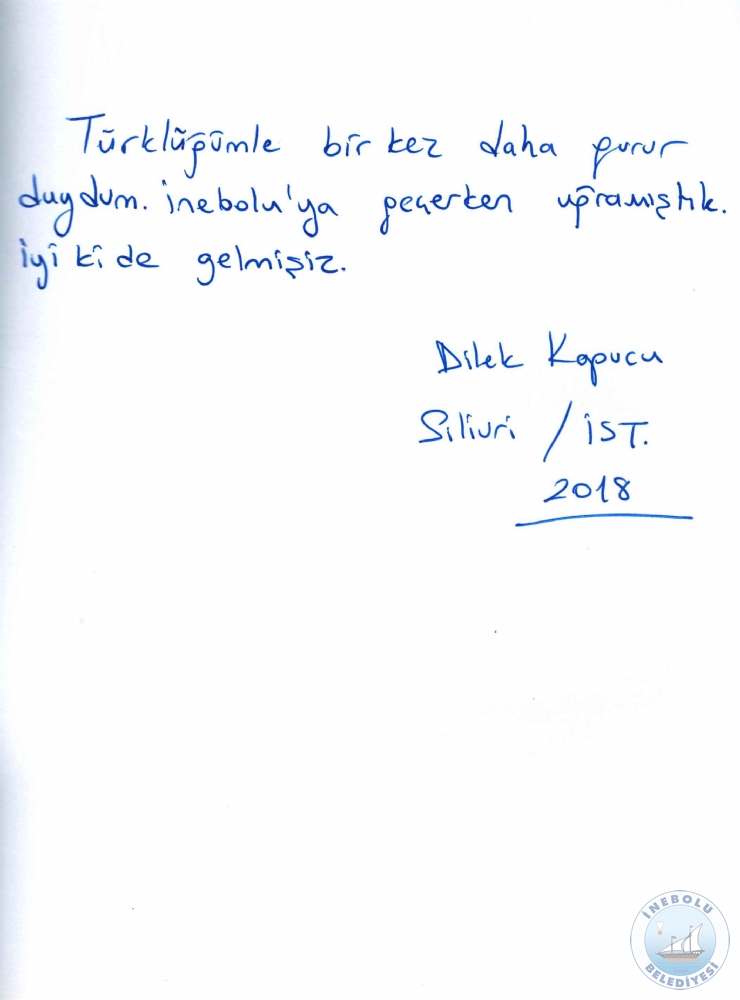 Türklüğümle bir kez daha gurur
duydum. İnebolu'ya geçerken uğramıştık.
İyi ki de gelmişiz.
Dilek Kapucu
Silivri / İST.
2018
İNEBOLU
BELEDİYESİ